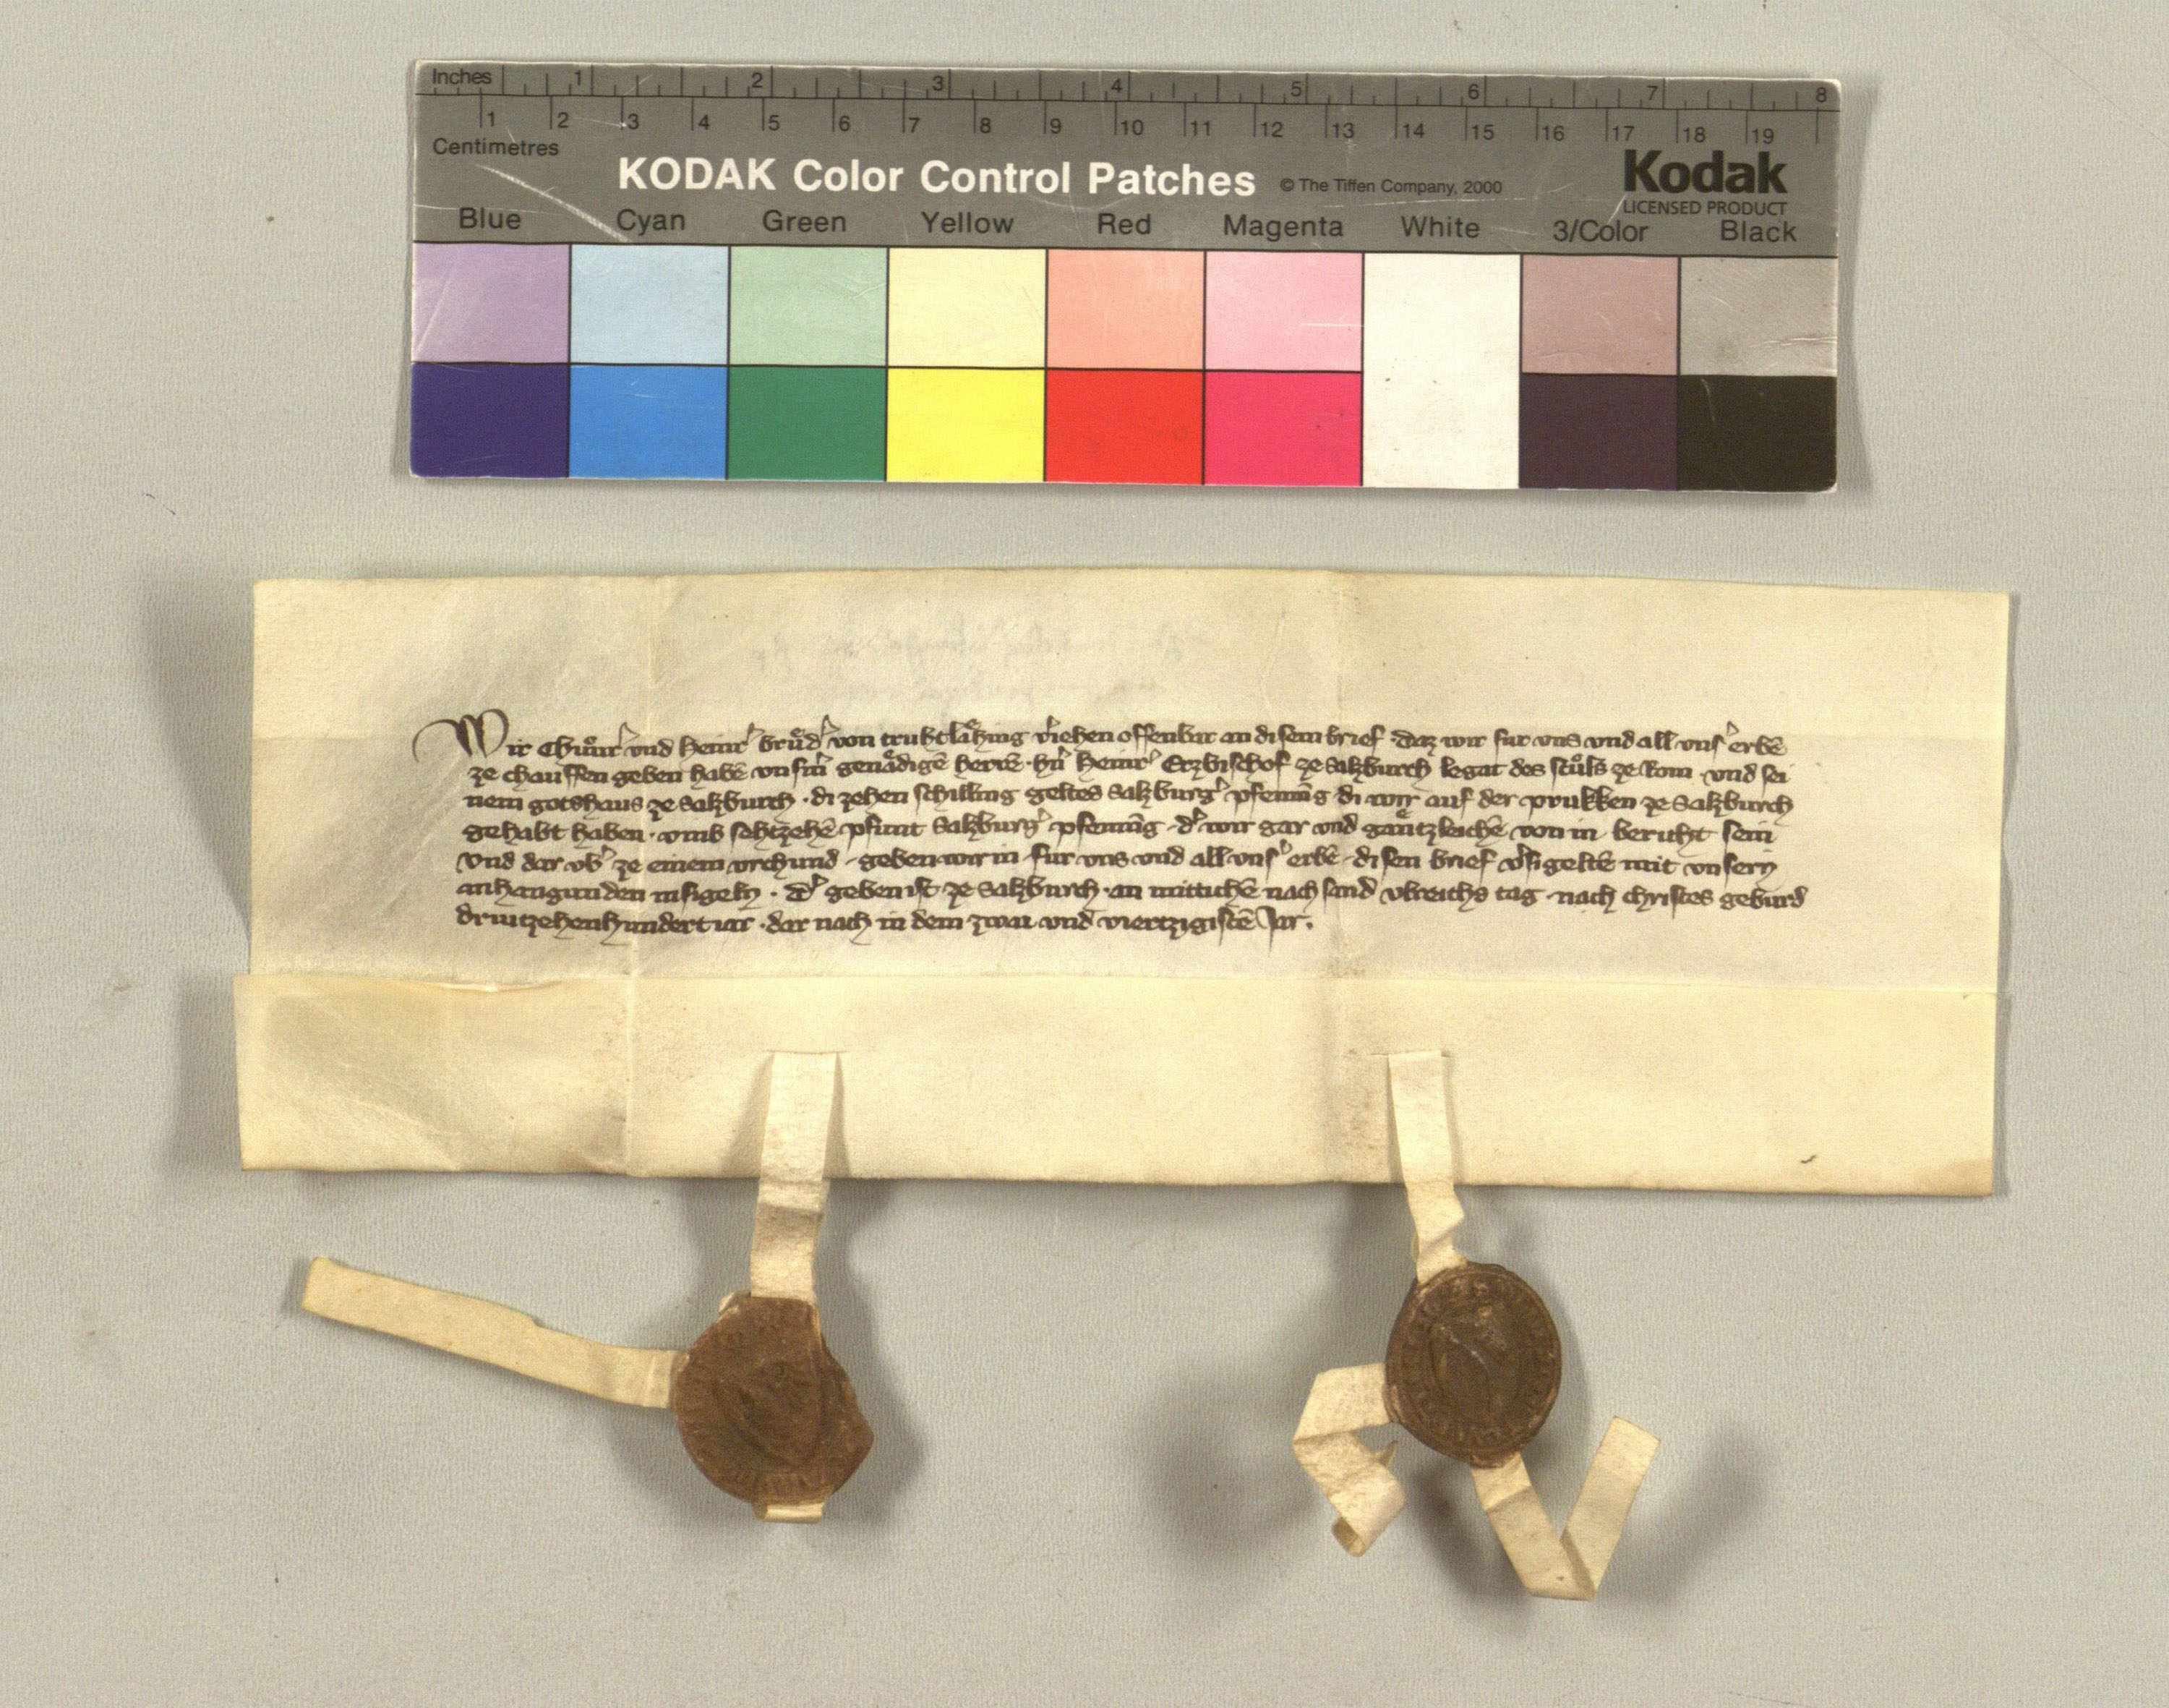 Inches 1 2 3 4 5 6 7 8
1 2 3 4 5 6 7 8 9 10 11 12 13 14 15 16 17 18 19
Centimetres
KODAK Color Control Patches © The Tiffen Company, 2000 Kodak
LICENSED PRODUCT
Blue Cyan Green Yellow Red Magenta White 3/Color Black
Wir Chůnr̓ vnd Heinr̓ brůd̓ von truhtlaͤhing v̓iehen offenbar an disem brief · daz wir fur vns vnd all vns̓ erbē
ze chauffen geben habē vnsm̄ genaͤdigē herrē · hn̄ Heinr̓ Erzbischof ze Salzburch legat des stůls ze Rom · vnd sei
nem gotshaus ze Salzburch · di zehen schilling geltes Salzburg̓ pfenīng di wir auf der prukken ze Salzburch
gehabt haben · vmb sehtzehē pfunt Salzburg̓ pfenīng · d̓ wir gar vnd gaͤntzleichē von in bericht sein
vnd dar vb̓ ze einem vrchund · geben wir in fur vns vnd all vns̓ erbē · disen brief v̓sigeltē mit vnsern
anhangunden insigeln · D̓ geben ist ze Salzburch · an mittichē nach sand vlreichs tag · nach christes geburd
driutzehenhundert iar · dar nach in dem zwai vnd viertzigistē Jar ·